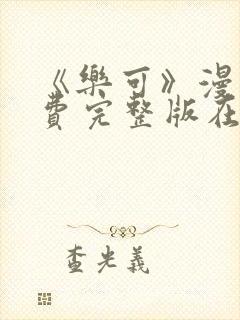 《樂可》漫
費完整版在
查光義